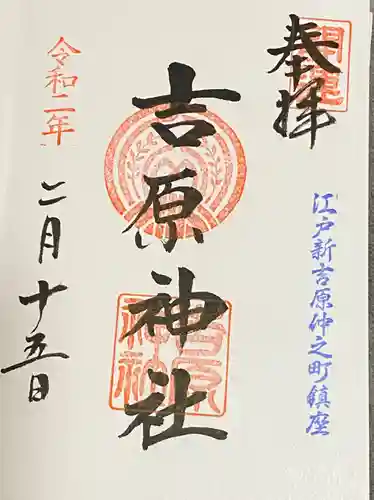 奉拝
開運
江戸新吉原仲之町鎮座
吉原神社
吉原神社
令和二年
二月十五日